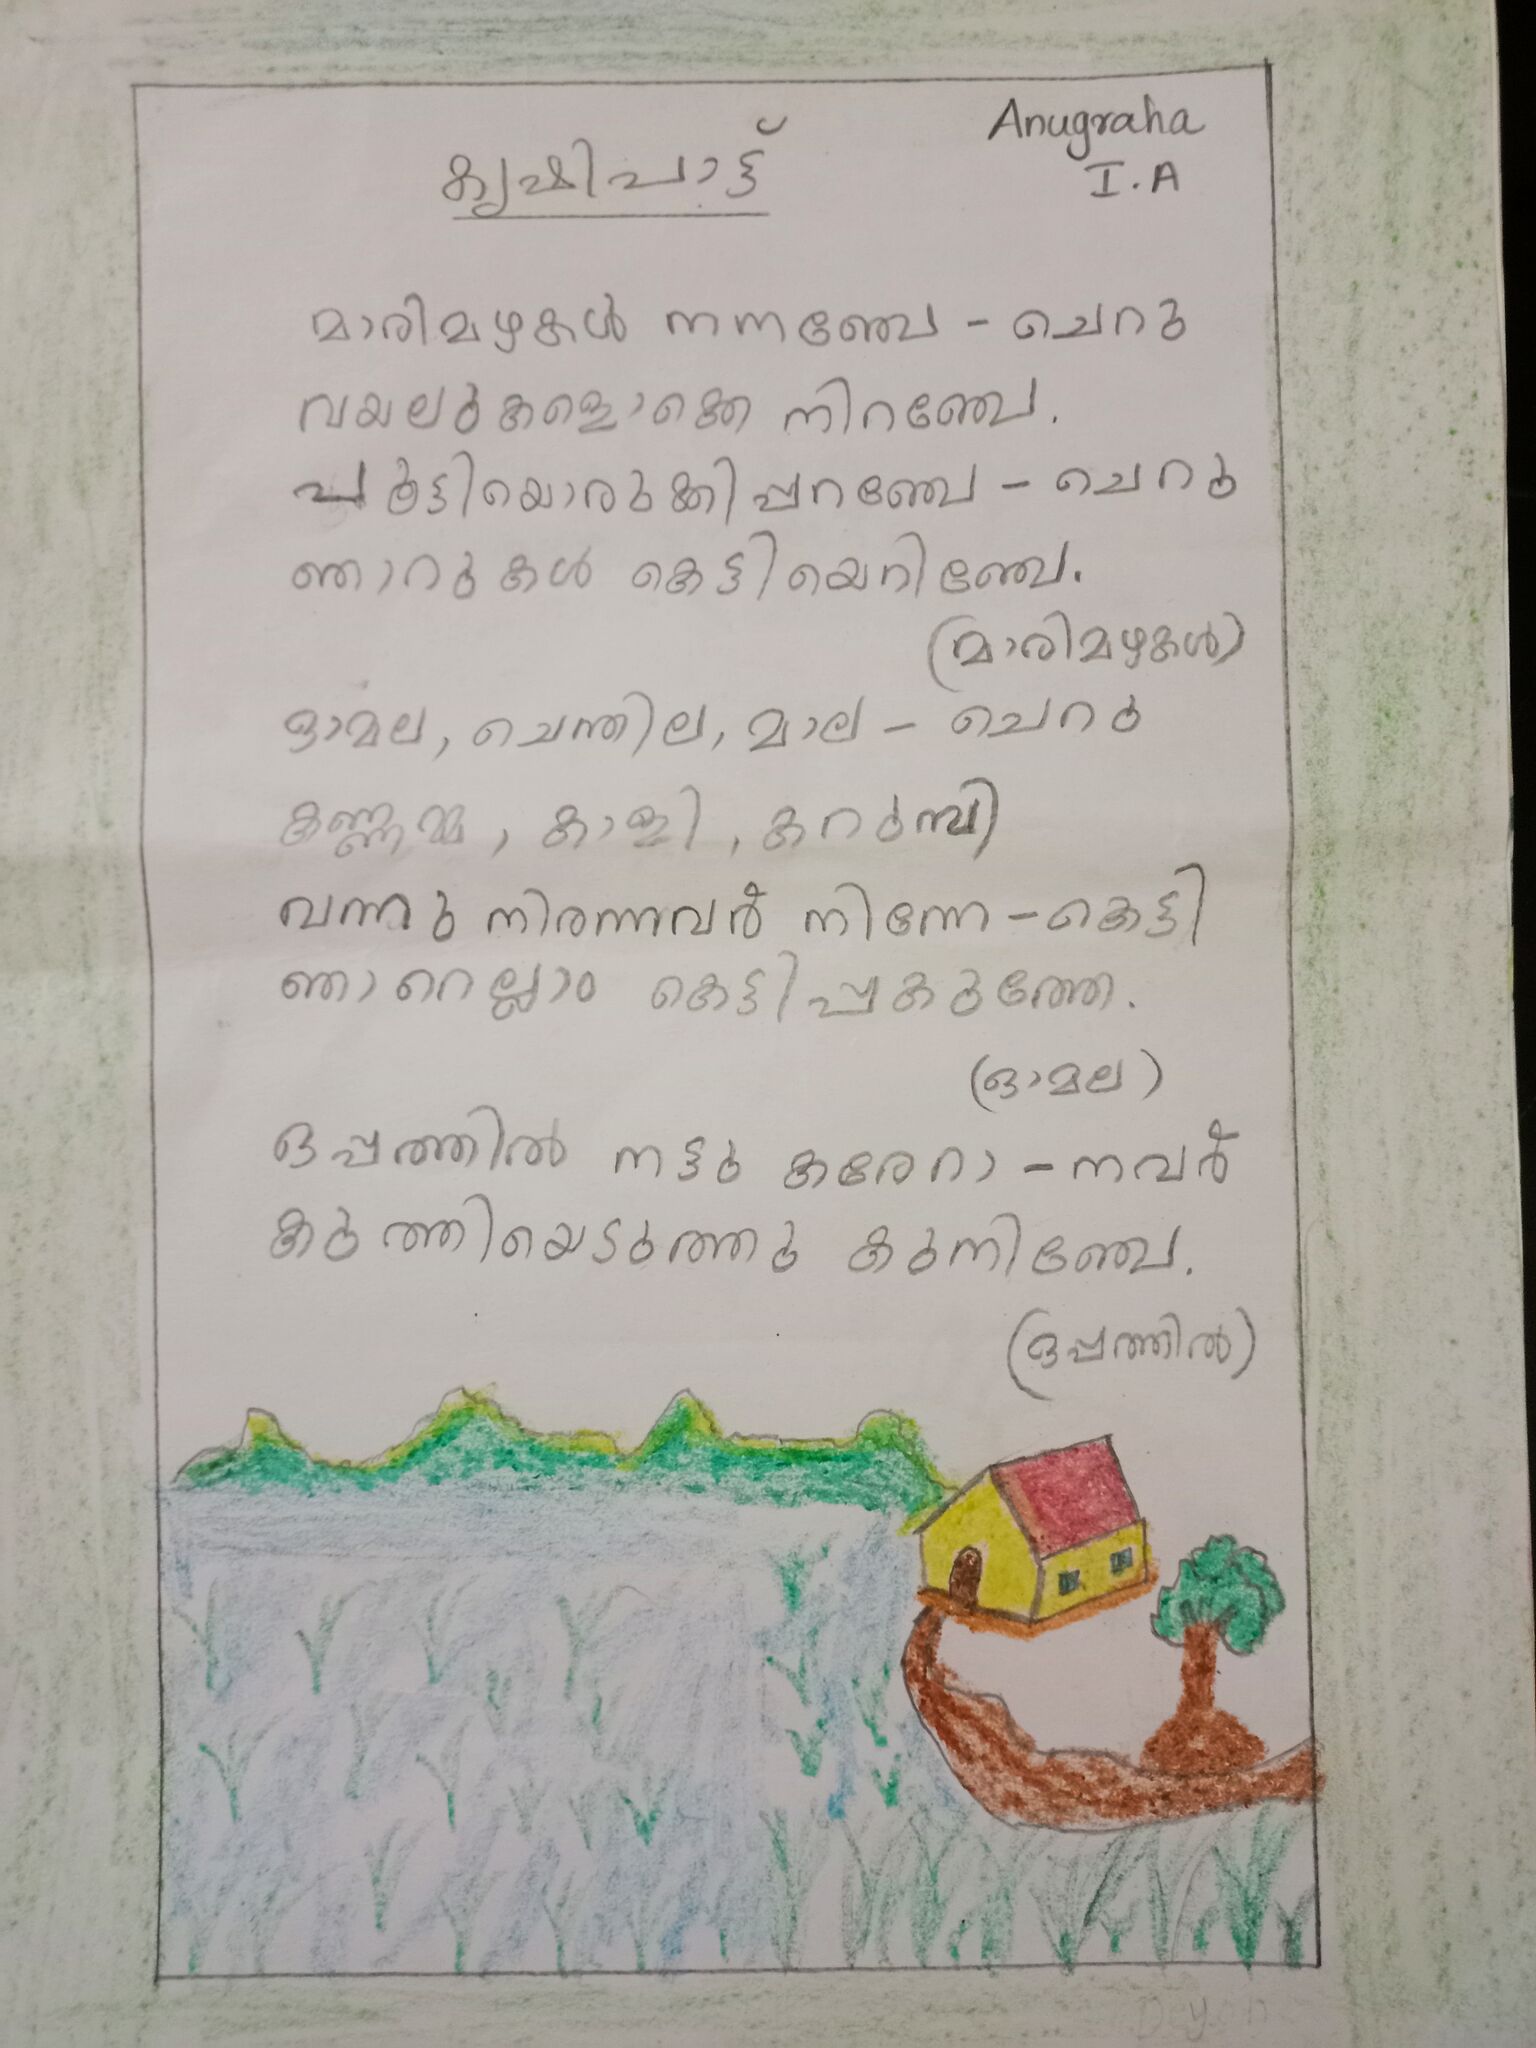 Anugraha
I.A
കൃഷിപാട്ട്
മാരിമഴകൾ നനഞ്ചേ - ചെറു
വയലുകളൊക്കെ നിറഞ്ചേ.
പൂട്ടിയൊരുക്കിപ്പറഞ്ചേ - ചെറു
ഞാറുകൾ കെട്ടിയെറിഞ്ചേ.
(മാരിമഴകൾ)
ഓമല, ചെന്തില, മാല - ചെറു
കണ്ണമ്മ, കാളി, കറുമ്പി
വന്നു നിരന്നവർ നിന്നേ - കെട്ടി
ഞാറെല്ലാം കെട്ടിപ്പകുത്തേ.
(ഓമല)
ഒപ്പത്തിൽ നട്ടു കരേറാ - നവർ
കുത്തിയെടുത്തു കുനിഞ്ചേ.
(ഒപ്പത്തിൽ)